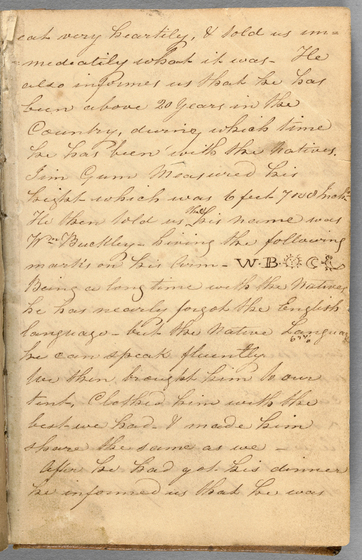 eat very heartily, & told us im-
mediatily what it was - He
also informes us that he has
been above 20 Years in the
Country, during which time
he has been with the Natives.
Jim Gum Measured his
hight which was 6 feet 7 inch
He then told us that his name was
Wm Buckley - having the following
marks on his arm - W.B
Being a long time with the Natives
he has nearly forgot the English
language - but the Native Language
he can speak fluently
We then brought him to our
tent, Clothed him with the
best we had & made him
share the same as we -
After he had got his dinner
he informed us that he was